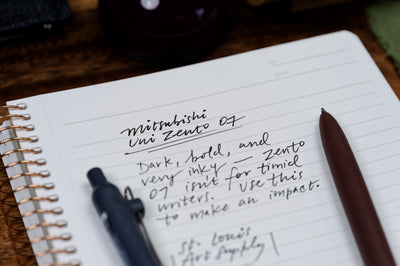 Mitsubishi
Uni Zento 07
Dark, bold, and
very inky — Zento
07 isn't for timid
writers. Use this
to make an impact.
St. Louis
Art Supply